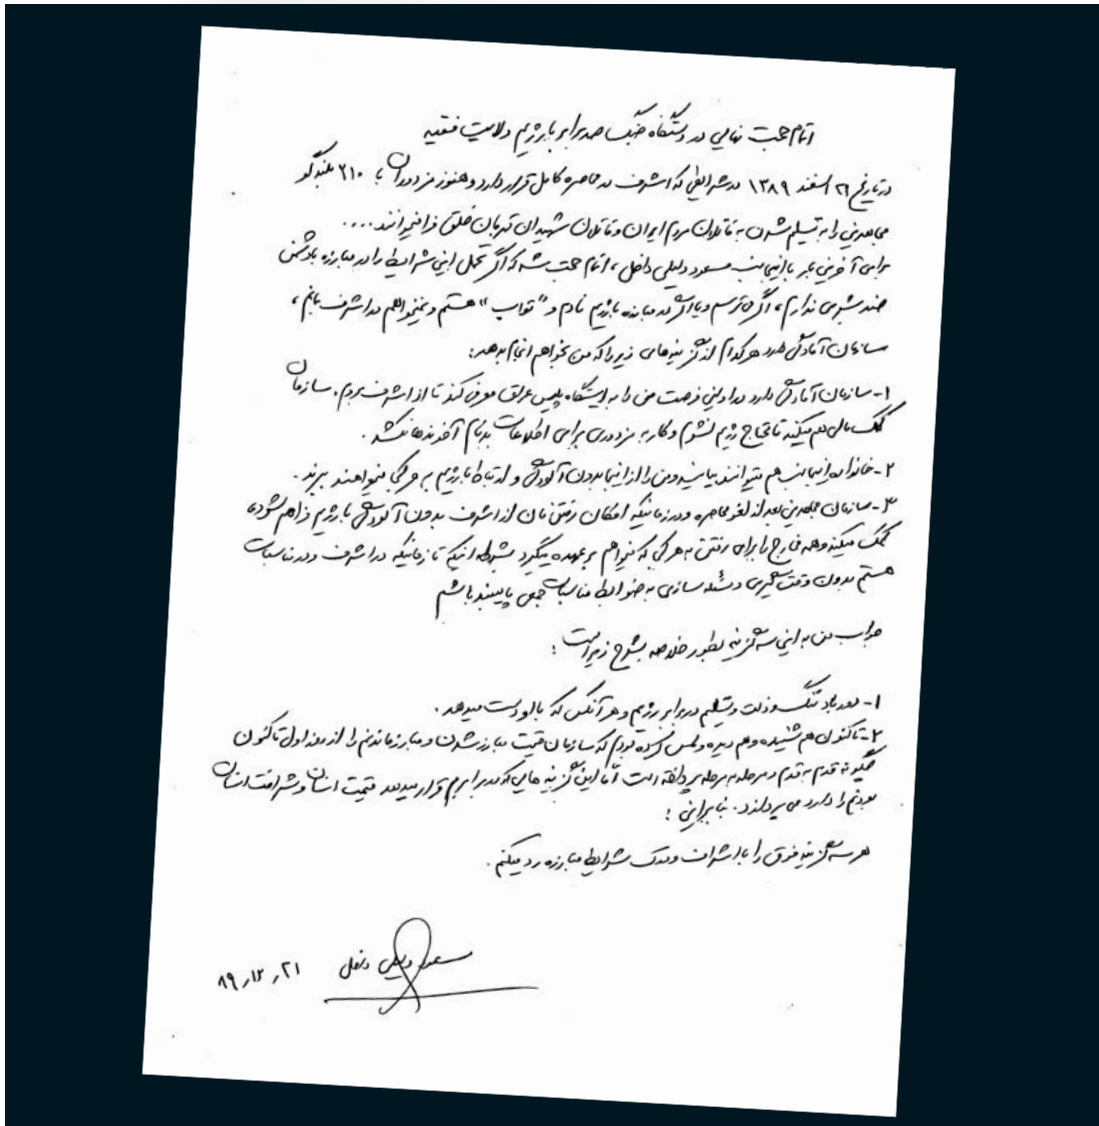 اتمام حجت نهایی در دستگاه جنگ صد برابر با رژیم ولایت فقیه
در تاریخ ۲۱ اسفند ۱۳۸۹ در شرایطی که اشرف در محاصره کامل قرار دارد و هنوز مزدوران با ۲۱۰ بلندگو
مجاهدین را به تسلیم شدن به قاتلان مردم ایران و قاتلان شهیدان قهرمان خلق فرا میخوانند ....
برای آخرین بار با اینجانب مسعود دلیلی داخل، اتمام حجت شد که اگر تحمل این شرایط را در مبارزه با دشمن
ضد بشری ندارم، اگر می ترسم و یا اگر در مبارزه با رژیم نادم و "تواب" هستم و نمیخواهم در اشرف بمانم،
سازمان آمادگی دارد هر کدام از گزینه های زیر را که من بخواهم انجام بدهد:
۱- سازمان آمادگی دارد در اولین فرصت من را به ایستگاه پلیس عراق معرفی کند تا از اشرف بروم. سازمان
کمک مالی هم میکند تا محتاج رژیم نشوم و کار به مزدوری برای اطلاعات بدنام آخوندها نکشد.
۲- خانواده اینجانب هم میتوانند بیایند و من را از اینجا بدون آلودگی و ارتباط با رژیم به هر کجا میخواهند ببرند.
۳- سازمان مجاهدین بعد از لغو محاصره و در زمانیکه امکان رفتن مان از اشرف بدون آلودگی با رژیم فراهم شود،
کمک میکند و همه خارج را برای رفتن به هر کجا که میخواهم بر عهده میگیرد بشرط اینکه تا زمانیکه در اشرف و در مناسبات
هستم بدون وقت گیری و مسئله سازی به ضوابط مناسبات جمعی پایبند باشم
جواب من به این سه گزینه بطور خلاصه بشرح زیر است:
۱- مرده باد ننگ و ذلت و تسلیم در برابر رژیم و هر آنکس که با او دست میدهد.
۲- تاکنون هم شنیده و هم دیده و لمس کرده بودم که سازمان قیمت مبارز شدن و مبارز ماندنم را از روز اول تاکنون
چگونه قدم به قدم و مرحله به مرحله پرداخته است اما این گزینه هایی که در برابرم قرار میدهد قیمت انسان و شرافت انسان
بودنم را دارد می پردازد. بنابراین:
هر سه گزینه فوق را با اشراف و درک شرایط مبارزه رد میکنم.
مسعود دلیلی داخل ۸۹,۱۲,۲۱